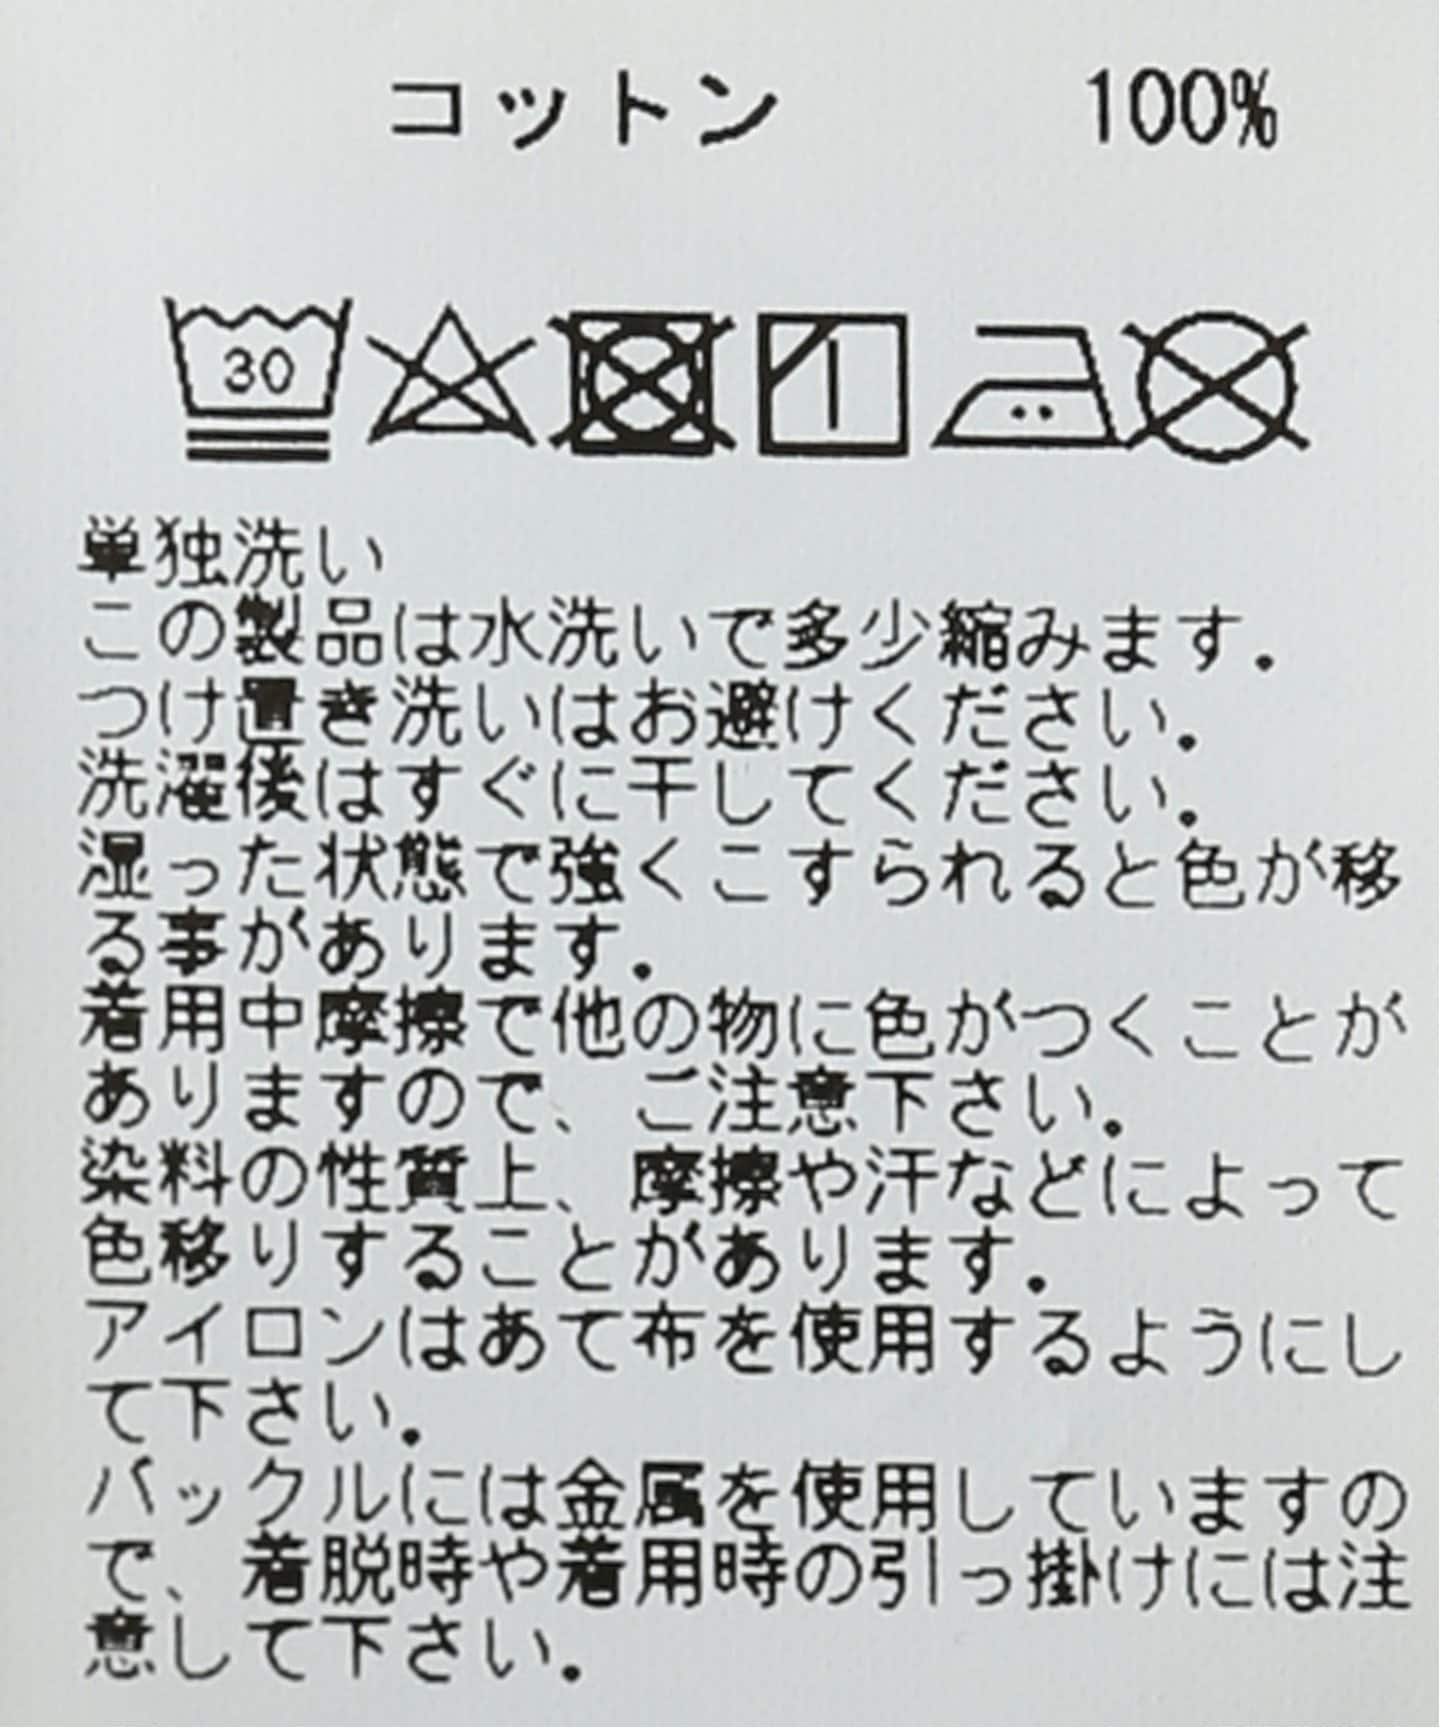 コットン 100%
30
単独洗い
この製品は水洗いで多少縮みます.
つけ置き洗いはお避けください.
洗濯後はすぐに干してください.
湿った状態で強くこすられると色が移
る事があります.
着用中摩擦で他の物に色がつくことが
ありますので、ご注意下さい.
染料の性質上、摩擦や汗などによって
色移りすることがあります.
アイロンはあて布を使用するようにし
て下さい.
バックルには金属を使用していますの
で、着脱時や着用時の引っ掛けには注
意して下さい.